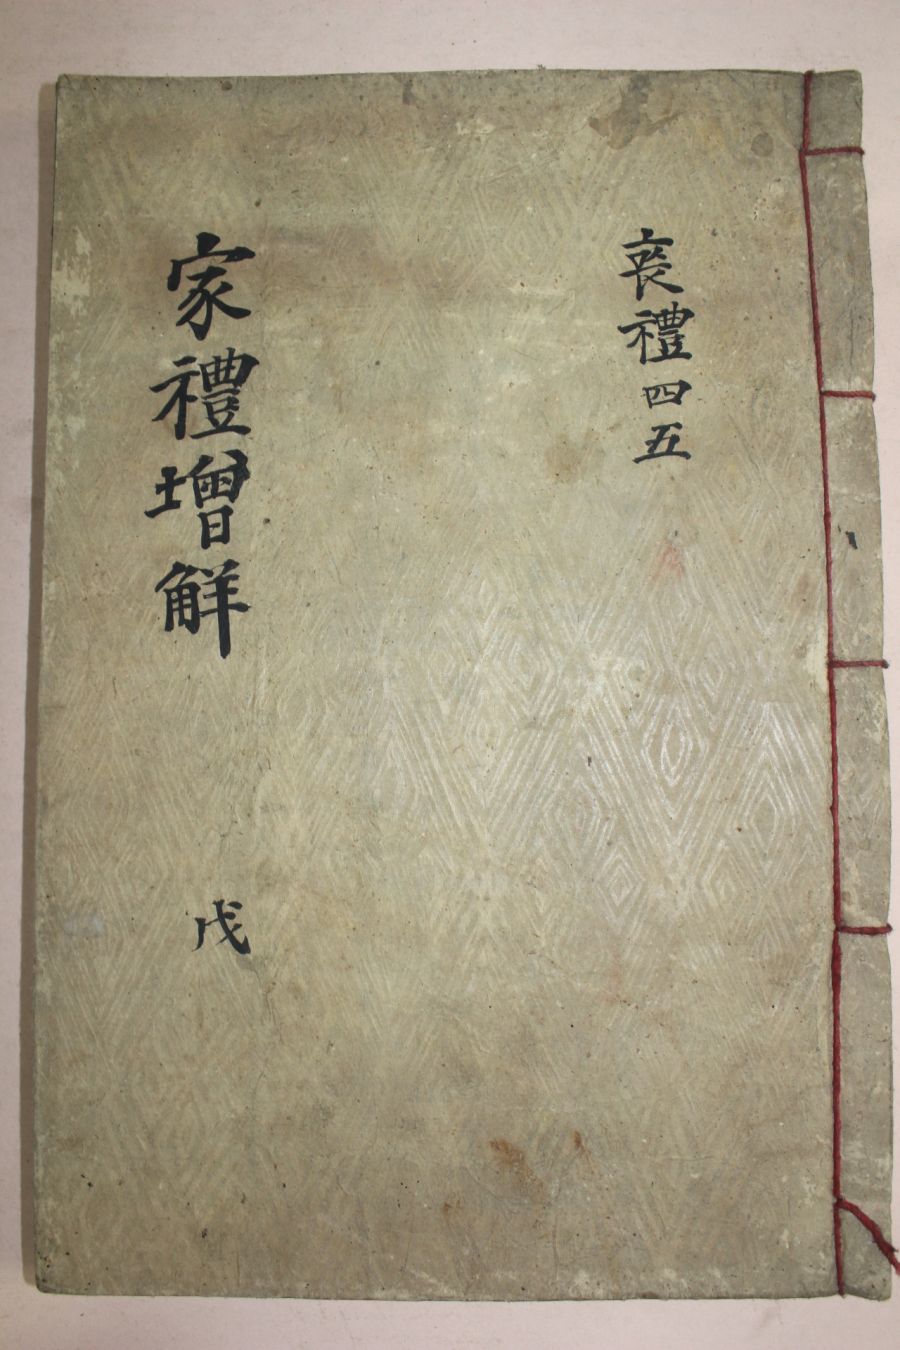 喪禮 四五
家禮增解
戊